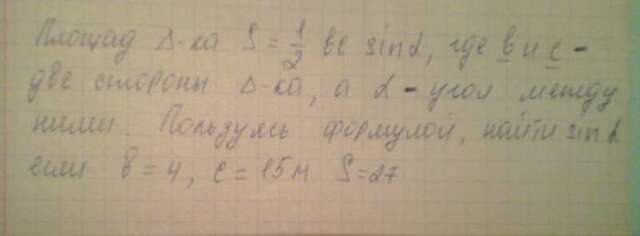 Площад Δ-ка S = 1/2 bc sinα, где b и c -
две стороны Δ-ка, а α - угол между
ними. Пользуясь формулой, найти sinα
если b = 4, c = 15м S = 27